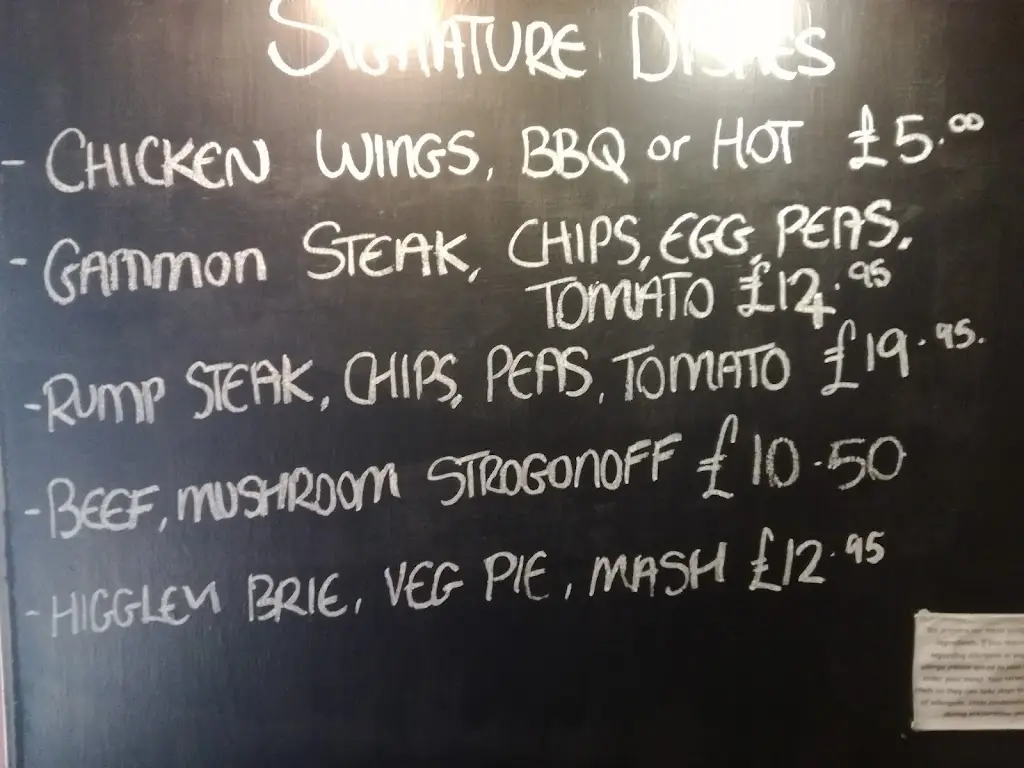 SIGNATURE DISHES
- CHICKEN WINGS, BBQ or HOT £5.00
- GAMMON STEAK, CHIPS, EGG, PEAS,
TOMATO £12.95
- RUMP STEAK, CHIPS, PEAS, TOMATO £19.95.
- BEEF, MUSHROOM STROGONOFF £10.50
- HIGGLEN BRIE, VEG PIE, MASH £12.95